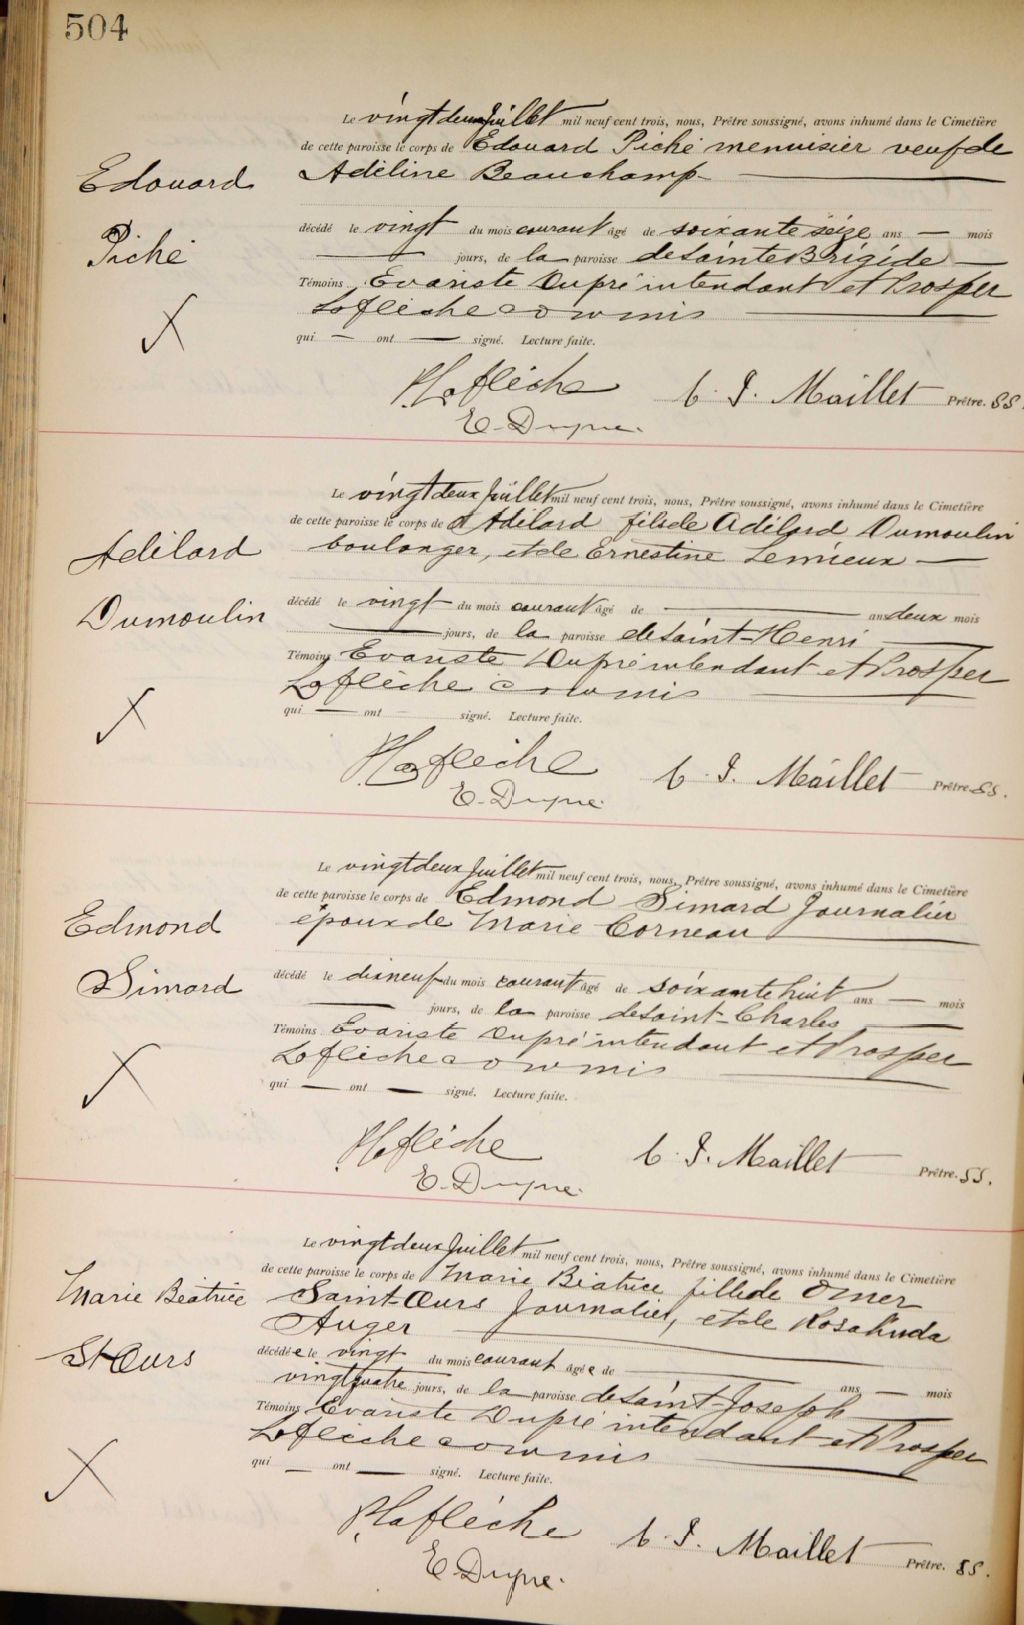 504
Le vingt deux juillet mil neuf cent trois, nous, Prêtre soussigné, avons inhumé dans le Cimetière
de cette paroisse le corps de Edouard Piché menuisier veuf de
Adéline Beauchamp
Edouard
Piché
décédé le vingt du mois courant âgé de soixante seize ans — mois
— jours, de la paroisse de Sainte Brigide —
Témoins Evariste Dupré intendant et Prosper
Laflèche commis
qui — ont — signé. Lecture faite.
P. Laflèche C. J. Maillet Prêtre. SS.
E. Dupré.
Le vingt deux juillet mil neuf cent trois, nous, Prêtre soussigné, avons inhumé dans le Cimetière
de cette paroisse le corps de Adélard fils de Adélard Dumoulin
boulanger, et de Ernestine Lemieux —
Adélard
Dumoulin
décédé le vingt du mois courant âgé de — ans deux mois
— jours, de la paroisse de Saint-Henri —
Témoins Evariste Dupré intendant et Prosper
Laflèche commis —
qui — ont signé. Lecture faite.
P. Laflèche C. J. Maillet Prêtre. SS.
E. Dupré.
Le vingt deux juillet mil neuf cent trois, nous, Prêtre soussigné, avons inhumé dans le Cimetière
de cette paroisse le corps de Edmond Simard journalier
époux de Marie Corneau —
Edmond
Simard
décédé le dix neuf du mois courant âgé de soixante huit ans — mois
— jours, de la paroisse de Saint-Charles —
Témoins Evariste Dupré intendant et Prosper
Laflèche commis —
qui — ont — signé. Lecture faite.
P. Laflèche C. J. Maillet Prêtre. SS.
E. Dupré.
Le vingt deux juillet mil neuf cent trois, nous, Prêtre soussigné, avons inhumé dans le Cimetière
de cette paroisse le corps de Marie Béatrice fille de Omer
Saint-Ours journalier, et de Rosalinda
Auger —
Marie Béatrice
St Ours
décédée le vingt du mois courant âgée de — ans — mois
vingt quatre jours, de la paroisse de Saint-Joseph —
Témoins Evariste Dupré intendant et Prosper
Laflèche commis —
qui — ont — signé. Lecture faite.
P. Laflèche C. J. Maillet Prêtre. SS.
E. Dupré.